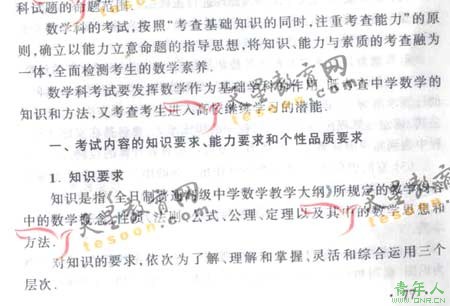 科试题的命题范围。
数学科的考试,按照“考查基础知识的同时,注重考查能力”的原
则,确立以能力立意命题的指导思想,将知识、能力与素质的考查融为
一体,全面检测考生的数学素养。
数学科考试要发挥数学作为基础学科的作用,既考查中学数学的
知识和方法,又考查考生进入高校继续学习的潜能。
一、考试内容的知识要求、能力要求和个性品质要求
1. 知识要求
知识是指《全日制普通高级中学数学教学大纲》所规定的教学内容
中的数学概念、性质、法则、公式、公理、定理以及其中的数学思想和
方法。
对知识的要求,依次为了解、理解和掌握、灵活和综合运用三个
层次。
天星教育网
tesoon.com
天星教育网
tesoon.com
青年人
www.QNR.cn